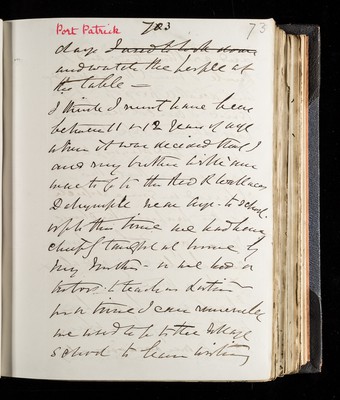 Port Patrick 73 73
days I used to look down
and watch the people at
the table —
I think I must have been
between 11 & 12 years of age
when it was decided that I
and my brother Willie
were to go to the Revd R Wallaces
Dalrymple near Ayr - to school.
up to this time we had been
taught at home by
my Mother - or we had a
to teach us Latin
for a time I can remember
we used to go to the Village
school to learn writing